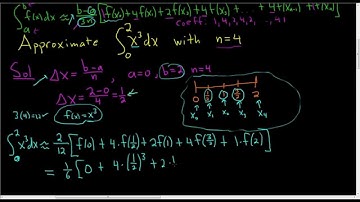 ∫ₐᵇ f(x)dx ≈ (b-a)/(3n) [f(x₀)+4f(x₁)+2f(x₂)+4f(x₃)+ ... +4f(xₙ₋₁)+1f(xₙ)]
coeff. 1,4,2,4,2, ..., 4,1
Approximate ∫₀² x³dx with n=4
Sol Δx = (b-a)/n , a=0, b=2, n=4
Δx = (2-0)/4 = 1/2
0 1/2 1 3/2 2
x₀ x₁ x₂ x₃ x₄
3(4)=12 f(x)=x³
∫₀² x³dx ≈ 2/12 [f(0) + 4·f(1/2) + 2f(1) + 4·f(3/2) + 1·f(2)]
= 1/6 [0 + 4·(1/2)³ + 2·1